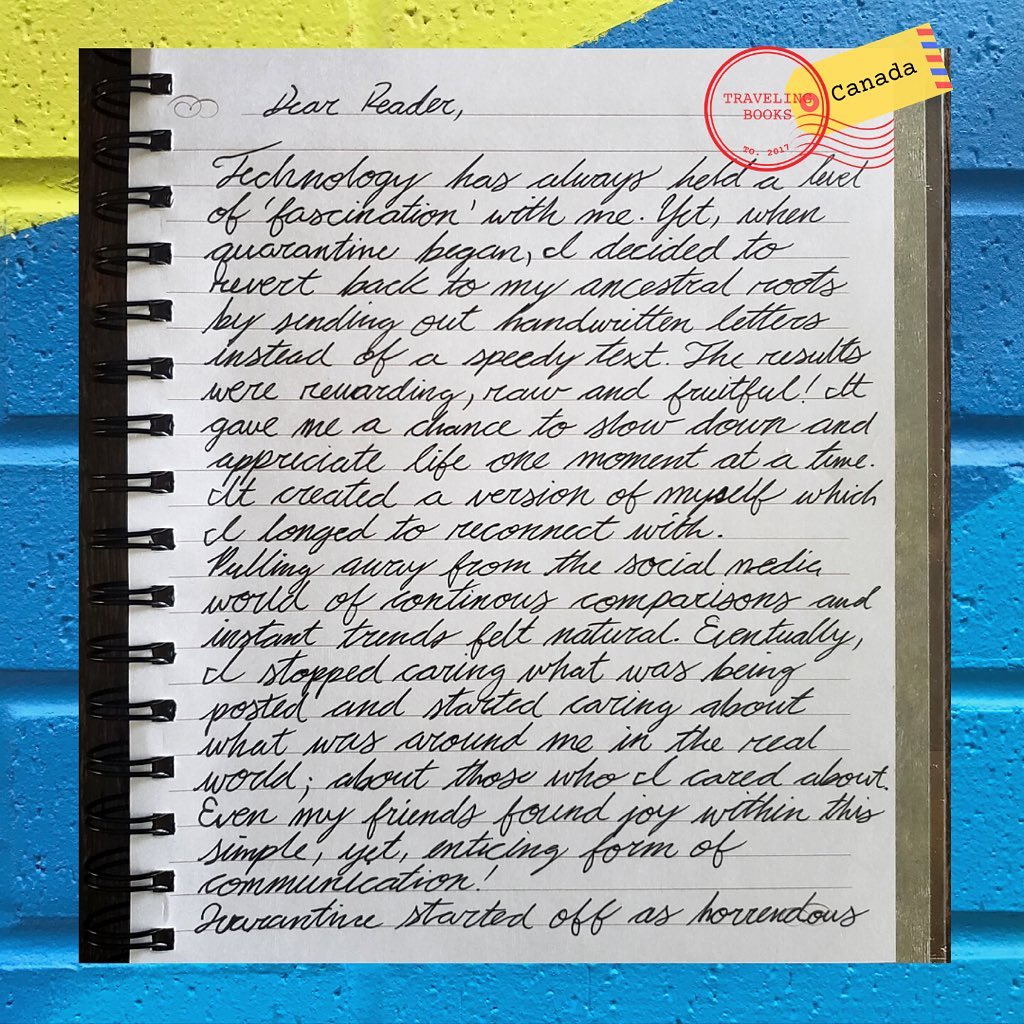 Dear Reader,
TRAVELING
BOOKS
TO. 2017
Canada
Technology has always held a level
of 'fascination' with me. Yet, when
quarantine began, I decided to
revert back to my ancestral roots
by sending out handwritten letters
instead of a speedy text. The results
were rewarding, raw and fruitful! It
gave me a chance to slow down and
appreciate life one moment at a time.
It created a version of myself which
I longed to reconnect with.
Pulling away from the social media
world of continous comparisons and
instant trends felt natural. Eventually,
I stopped caring what was being
posted and started caring about
what was around me in the real
world; about those who I cared about.
Even my friends found joy within this
simple, yet, enticing form of
communication!
Quarantine started off as horrendous